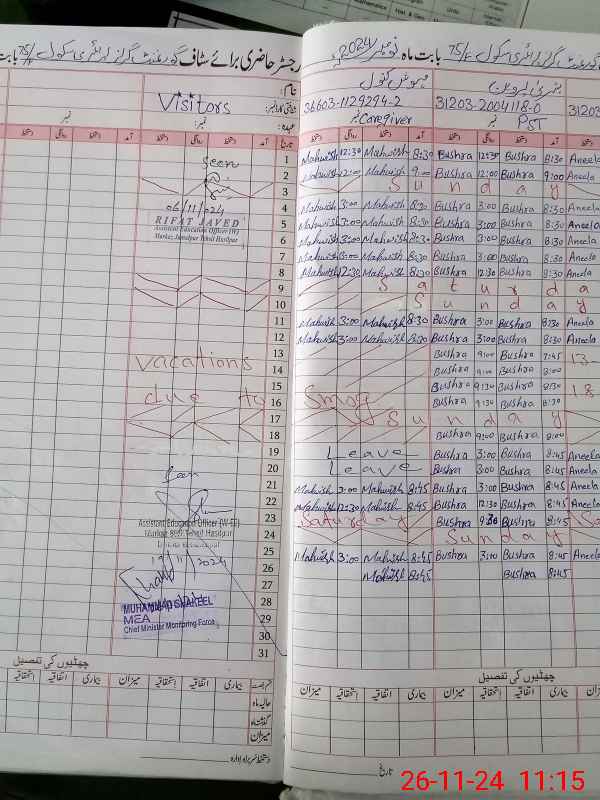 رجسٹر حاضری برائے سٹاف گورنمنٹ گرلز پرائمری سکول 75/F بابت
Visitors
نام:
شناختی کارڈ نمبر:
عہدہ:
نمبر:
تاریخ آمد دستخط روانگی دستخط
1
2 Seen
3
4 06/11/2024
5 RIFAT JAVED
Assistant Education Officer (W)
6 Markaz Jamalpur Tehsil Hasilpur
7
8
9
10
11
12
13 vacations
14
15
16 due to
17
18
19
20 Seen
21
22
23 Assistant Education Officer (W-EE)
24
25
26 19/11/2024
27
28 MUHAMMAD SHAKEEL
29 MEA
Chief Minister Monitoring Force
30
31
چھٹیوں کی تفصیل
قسم رخصت بیماری اتفاقیہ استحقاقیہ میزان بیماری اتفاقیہ استحقاقیہ
حالیہ ماہ
گذشتہ ماہ
میزان
دستخط سربراہ ادارہ
گورنمنٹ گرلز پرائمری سکول 75/F بابت ماہ نومبر 2024ء
مہوش کنول
بشریٰ پروین
36603-1129294-2 31203-2004118-0 31203
نمبر Caregiver نمبر PST
دستخط روانگی دستخط آمد دستخط روانگی دستخط آمد دستخط
Mahwish 12:30 Mahwish 8:30 Bushra 12:30 Bushra 8:30 Aneela
Mahwish 12:00 Mahwish 9:00 Bushra 12:00 Bushra 9:00 Aneela
Sunday
Mahwish 3:00 Mahwish 8:30 Bushra 3:00 Bushra 8:30 Aneela
Mahwish 3:00 Mahwish 8:30 Bushra 3:00 Bushra 8:30 Aneela
Mahwish 3:00 Mahwish 8:30 Bushra 3:00 Bushra 8:30 Aneela
Mahwish 3:00 Mahwish 8:30 Bushra 3:00 Bushra 8:30 Aneela
Mahwish 12:30 Mahwish 8:30 Bushra 12:30 Bushra 8:30 Aneela
Saturda
Sunday
Mahwish 3:00 Mahwish 8:30 Bushra 3:00 Bushra 8:30 Aneela
Mahwish 3:00 Mahwish 8:30 Bushra 3:00 Bushra 8:30 Aneela
Bushra 9:00 Bushra 7:45 13-
Bushra 9:00 Bushra 8:00
Bushra 9:30 Bushra 8:30 18
Smog Bushra 9:30 Bushra 8:30
Sunday
Bushra 9:00 Bushra 8:00
Leave Bushra 3:00 Bushra 8:45 Aneela
Leave Bushra 3:00 Bushra 8:45 Aneela
Mahwish 3:00 Mahwish 8:45 Bushra 3:00 Bushra 8:45 Aneela
Mahwish 12:30 Mahwish 8:45 Bushra 12:30 Bushra 8:45 Aneela
Saturday Bushra 9:30 Bushra 8:45 Sa
Sunday
Mahwish 3:00 Mahwish 8:45 Bushra 3:00 Bushra 8:45 Aneela
Mahwish 8:45 Bushra 8:45
چھٹیوں کی تفصیل
بیماری اتفاقیہ استحقاقیہ میزان بیماری اتفاقیہ استحقاقیہ میزان
تاریخ
26-11-24 11:15